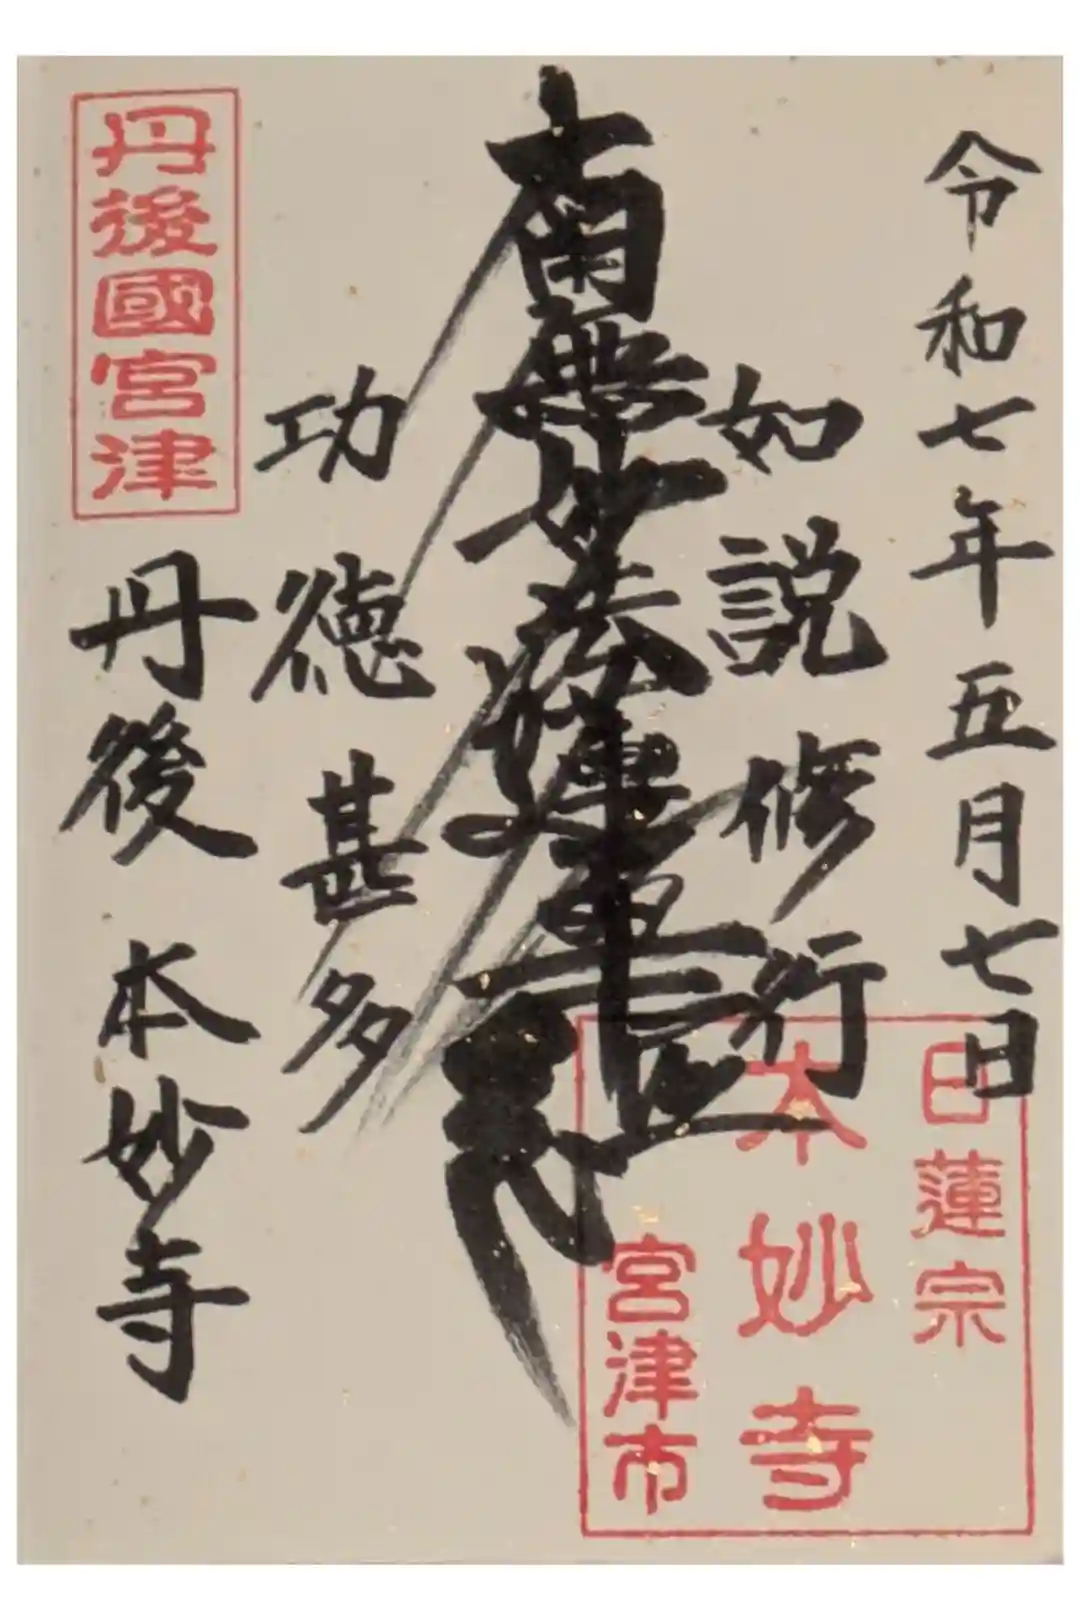 令和七年五月七日
如説修行
南無妙法蓮華経
功徳甚多
丹後國宮津
丹後 本妙寺
日蓮宗
本妙寺
宮津市